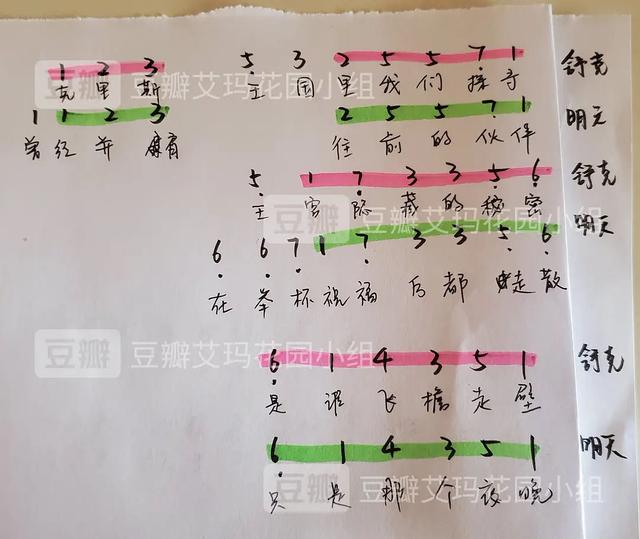 1 2 3 5 3 2 5 5 7 1 舒克
克里斯 王国里我们探寻
1 1 2 3 2 5 5 7 1 明天
曾经并肩 往前的伙伴
5 1 7 3 3 5 6 舒克
王宫隐藏的秘密
6 6 7 1 7 3 3 5 6 明天
在举杯祝福后都走散
6 1 4 3 5 1 舒克
是谁飞檐走壁
6 1 4 3 5 1 明天
只是那个夜晚
豆瓣 豆瓣艾玛花园小组
豆瓣 豆瓣艾玛花园小组
豆瓣 豆瓣艾玛花园小组
豆瓣 豆瓣艾玛花园小组